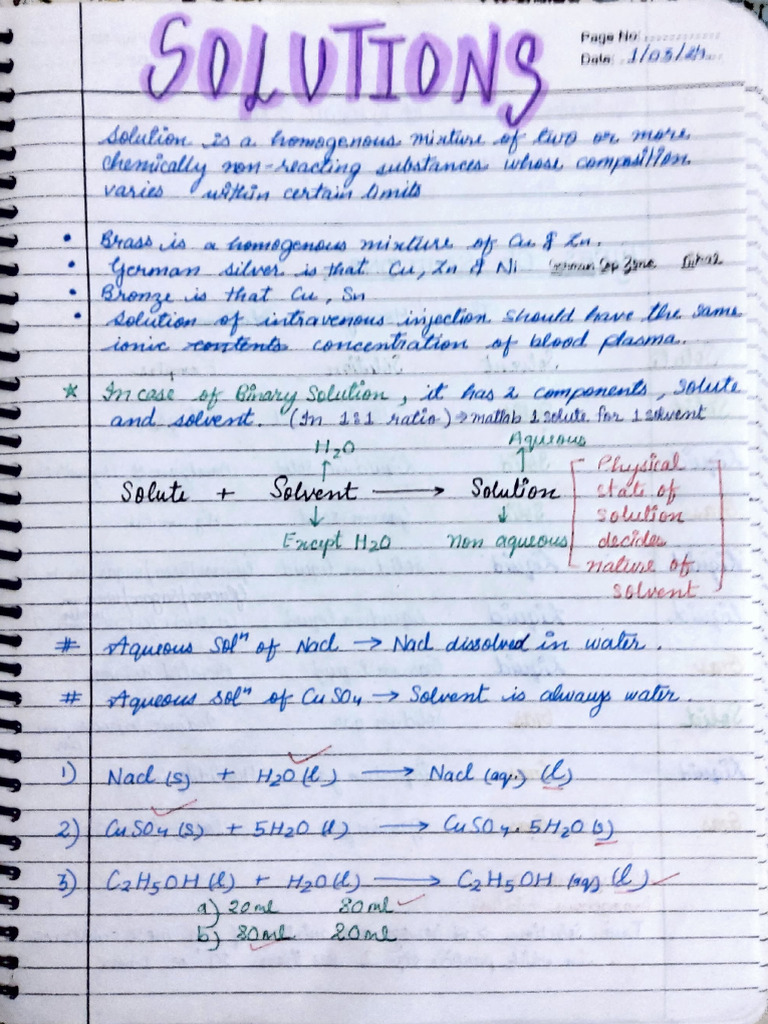 SOLUTIONS
Page No:
Date: 1/03/2
Solution is a homogenous mixture of two or more
chemically non-reacting substances whose composition
varies within certain limits
• Brass is a homogenous mixture of Cu & Zn.
• German silver is that Cu, Zn & Ni German Cop Zone
• Bronze is that Cu, Sn
• Solution of intravenous injection should have the same
ionic contents concentration of blood plasma.
* In case of Binary Solution, it has 2 components, solute
and solvent. (In 1:1 ratio) → matlab 1 solute for 1 solvent
H₂O Aqueous
Solute + Solvent → Solution
Except H₂O non aqueous
Physical
state of
solution
decides
nature of
solvent
# Aqueous Solⁿ of Nacl → Nacl dissolved in water.
# Aqueous Solⁿ of CuSO₄ → Solvent is always water.
1) Nacl (s) + H₂O (l) → Nacl (aq.) (l)
2) CuSO₄ (s) + 5H₂O (l) → CuSO₄. 5H₂O (s)
3) C₂H₅OH (l) + H₂O (l) → C₂H₅OH (aq) (l)
a) 20 ml 80 ml
b) 80 ml 20 ml